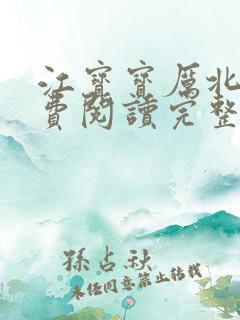 江寶寶厲北
費閱讀完整
孫占秋
未经同意禁止转载